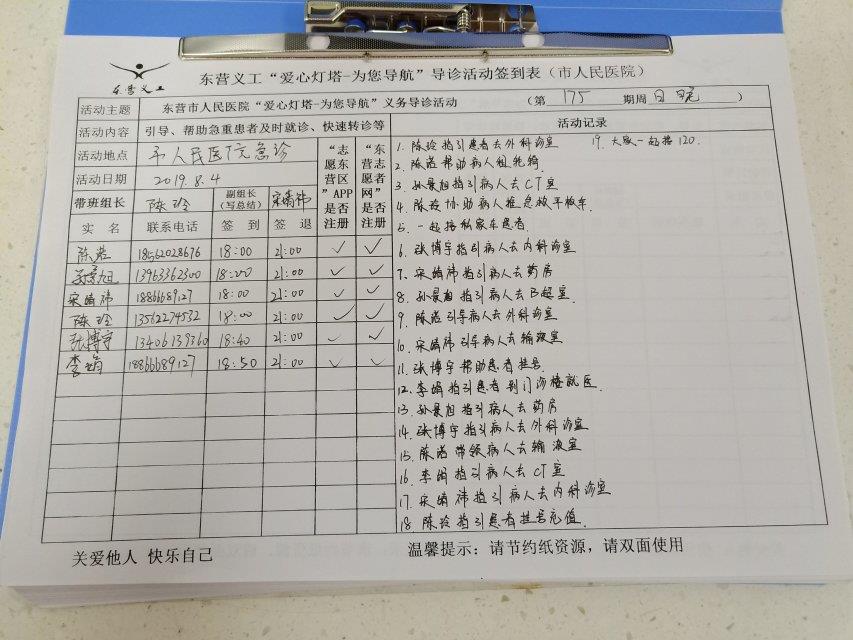 东营义工
东营义工“爱心灯塔-为您导航”导诊活动签到表（市人民医院）
活动主题 东营市人民医院“爱心灯塔-为您导航”义务导诊活动 （第 175 期周 日 晚 ）
活动内容 引导、帮助急重患者及时就诊、快速转诊等
活动地点 市人民医院急诊
活动日期 2019.8.4
带班组长 陈玲 副组长（写总结） 宋婧祎
“志愿东营区”APP是否注册
“东营志愿者网”是否注册
实 名 联系电话 签 到 签 退
陈茗 18562028676 18:00 21:00 ✓ ✓
孙景旭 13963362300 18:00 21:00 ✓ ✓
宋婧祎 18866689127 18:00 21:00 ✓ ✓
陈玲 13562274532 18:00 21:00 ✓ ✓
张博宇 13406139360 18:40 21:00 ✓ ✓
李娟 18866689127 18:50 21:00 ✓ ✓
活动记录
1. 陈玲指引患者去外科诊室
2. 陈茗帮助病人租轮椅
3. 孙景旭指引病人去CT室
4. 陈玲协助病人推急救平板车.
5. 一起接私家车患者
6. 张博宇指引病人去内科诊室
7. 宋婧祎指引病人去药房
8. 孙景旭指引病人去B超室.
9. 陈茗引导病人去外科诊室
10. 宋婧祎引导病人去输液室
11. 张博宇帮助患者挂号
12. 李娟指引患者到门诊楼就医.
13. 孙景旭指引病人去药房
14. 张博宇指引病人去外科诊室
15. 陈茗带领病人去输液室
16. 李娟指引病人去CT室
17. 宋婧祎指引病人去内科诊室
18. 陈玲指引患者挂号充值.
19. 大家一起接120.
关爱他人 快乐自己
温馨提示：请节约纸资源，请双面使用